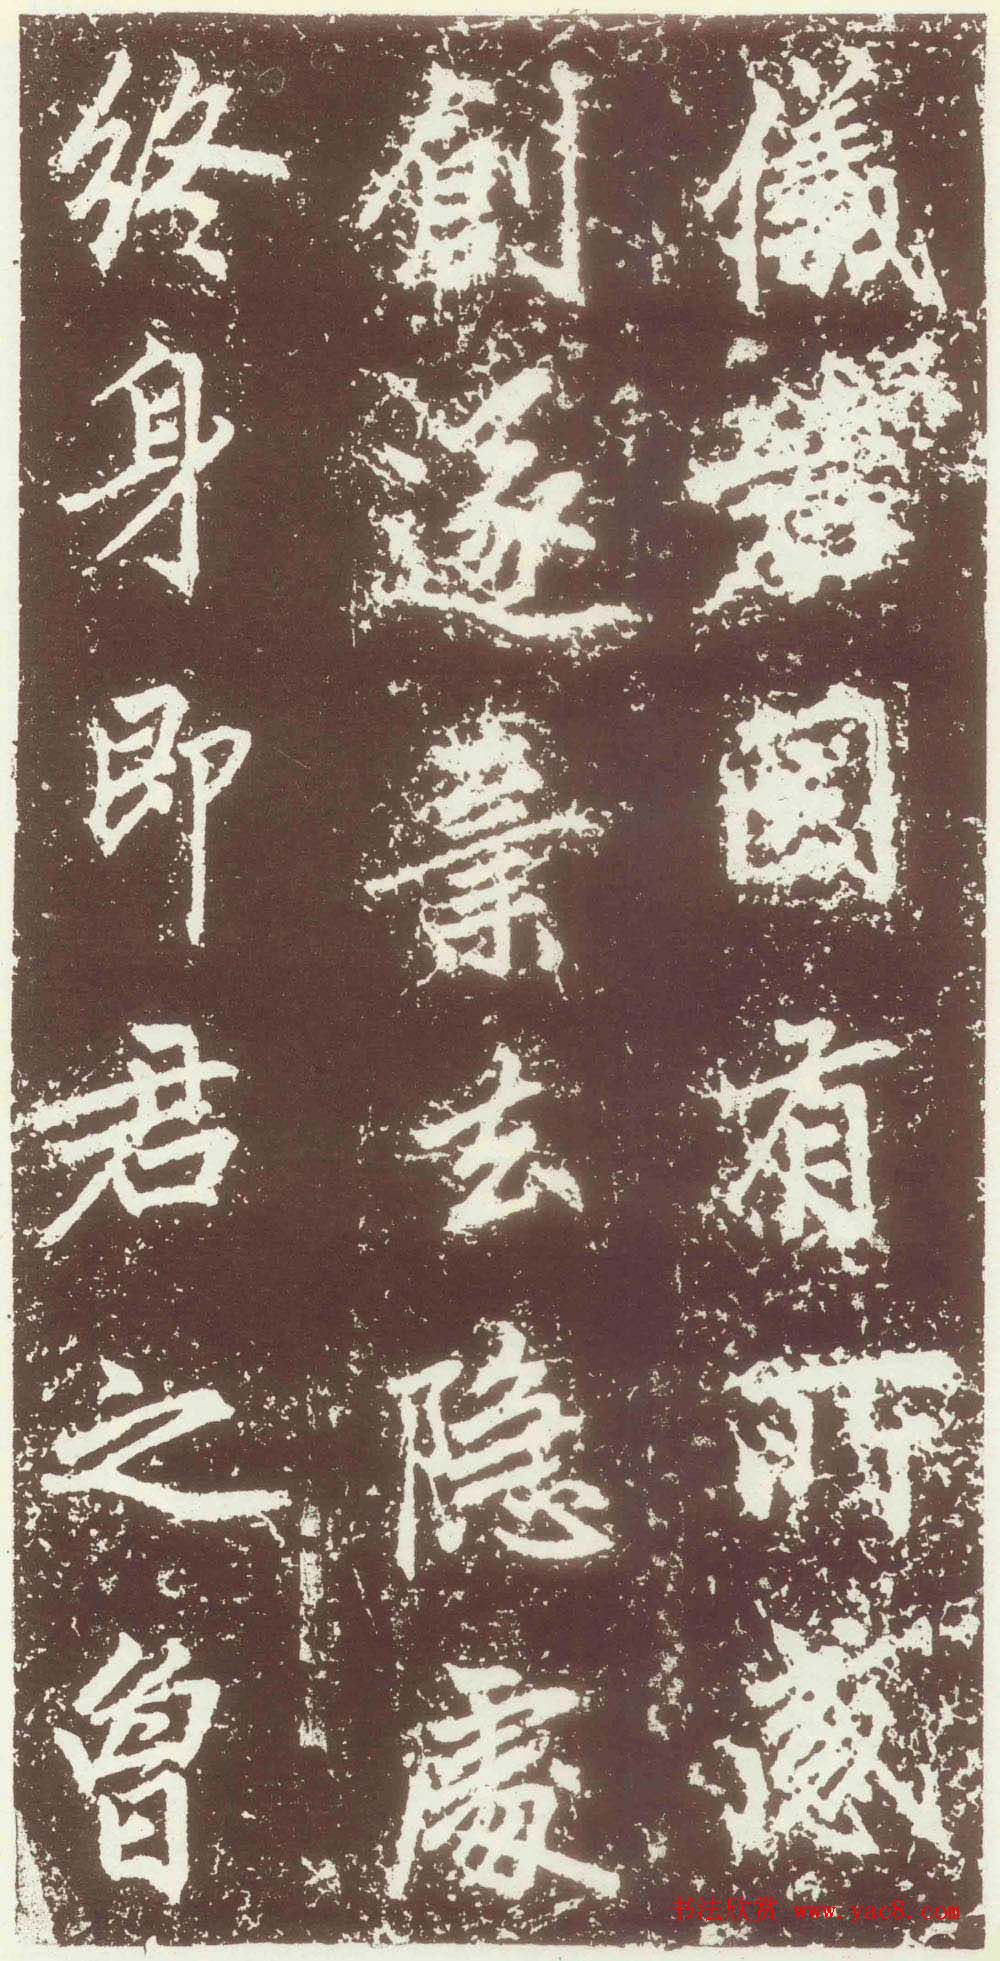 儀因有所感
創遂棄去隱處
終身即君之曾
书法欣赏 www.yac8.com